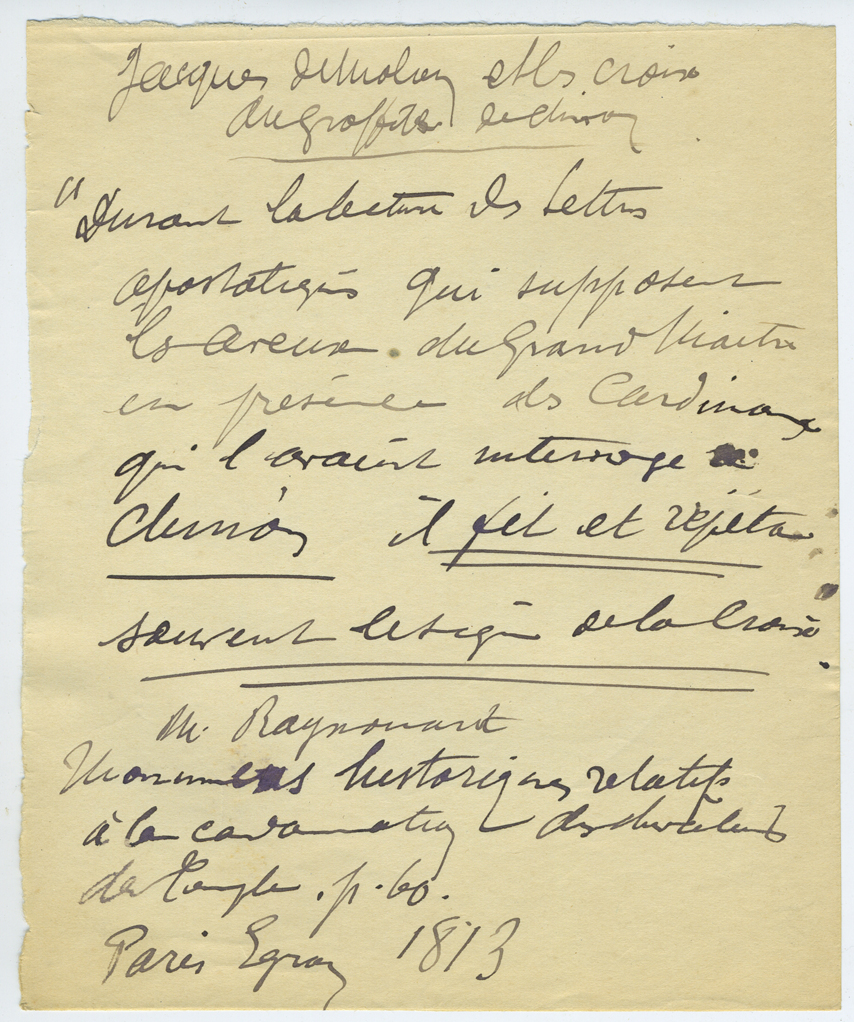 Jacques de Molay et les croix
du Graffite de Chinon
"Durant la lecture des Lettres
apostoliques qui supposent
les aveux du Grand Maitre
en présence des Cardinaux
qui l'avaient interrogé à
Chinon il fit et répéta
souvent le signe de la Croix.
M. Raynouard
Monuments historiques relatifs
à la condamnation des chevaliers
du Temple. p. 60.
Paris Egron 1813